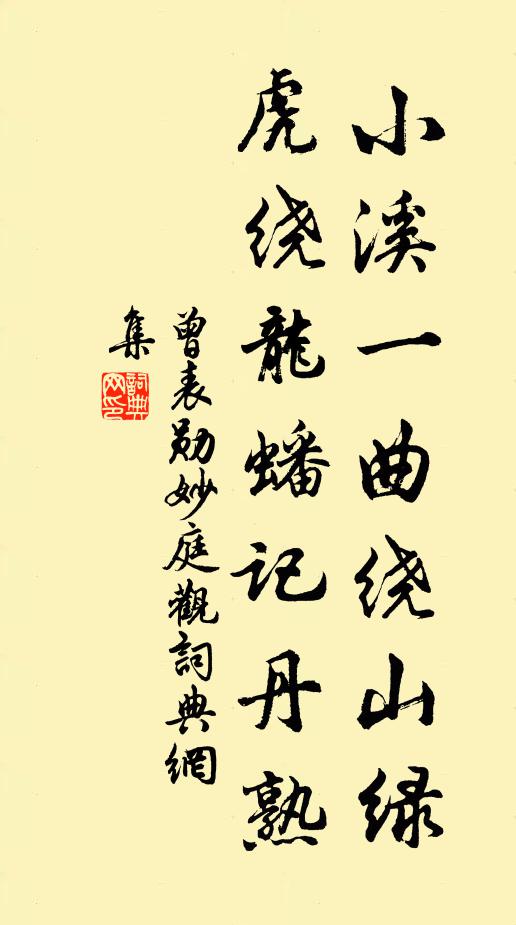 小溪一曲绕山绿
虎绕龍蟠记丹熟
曾表勋妙庭觀詞典網
集
詞典
网印